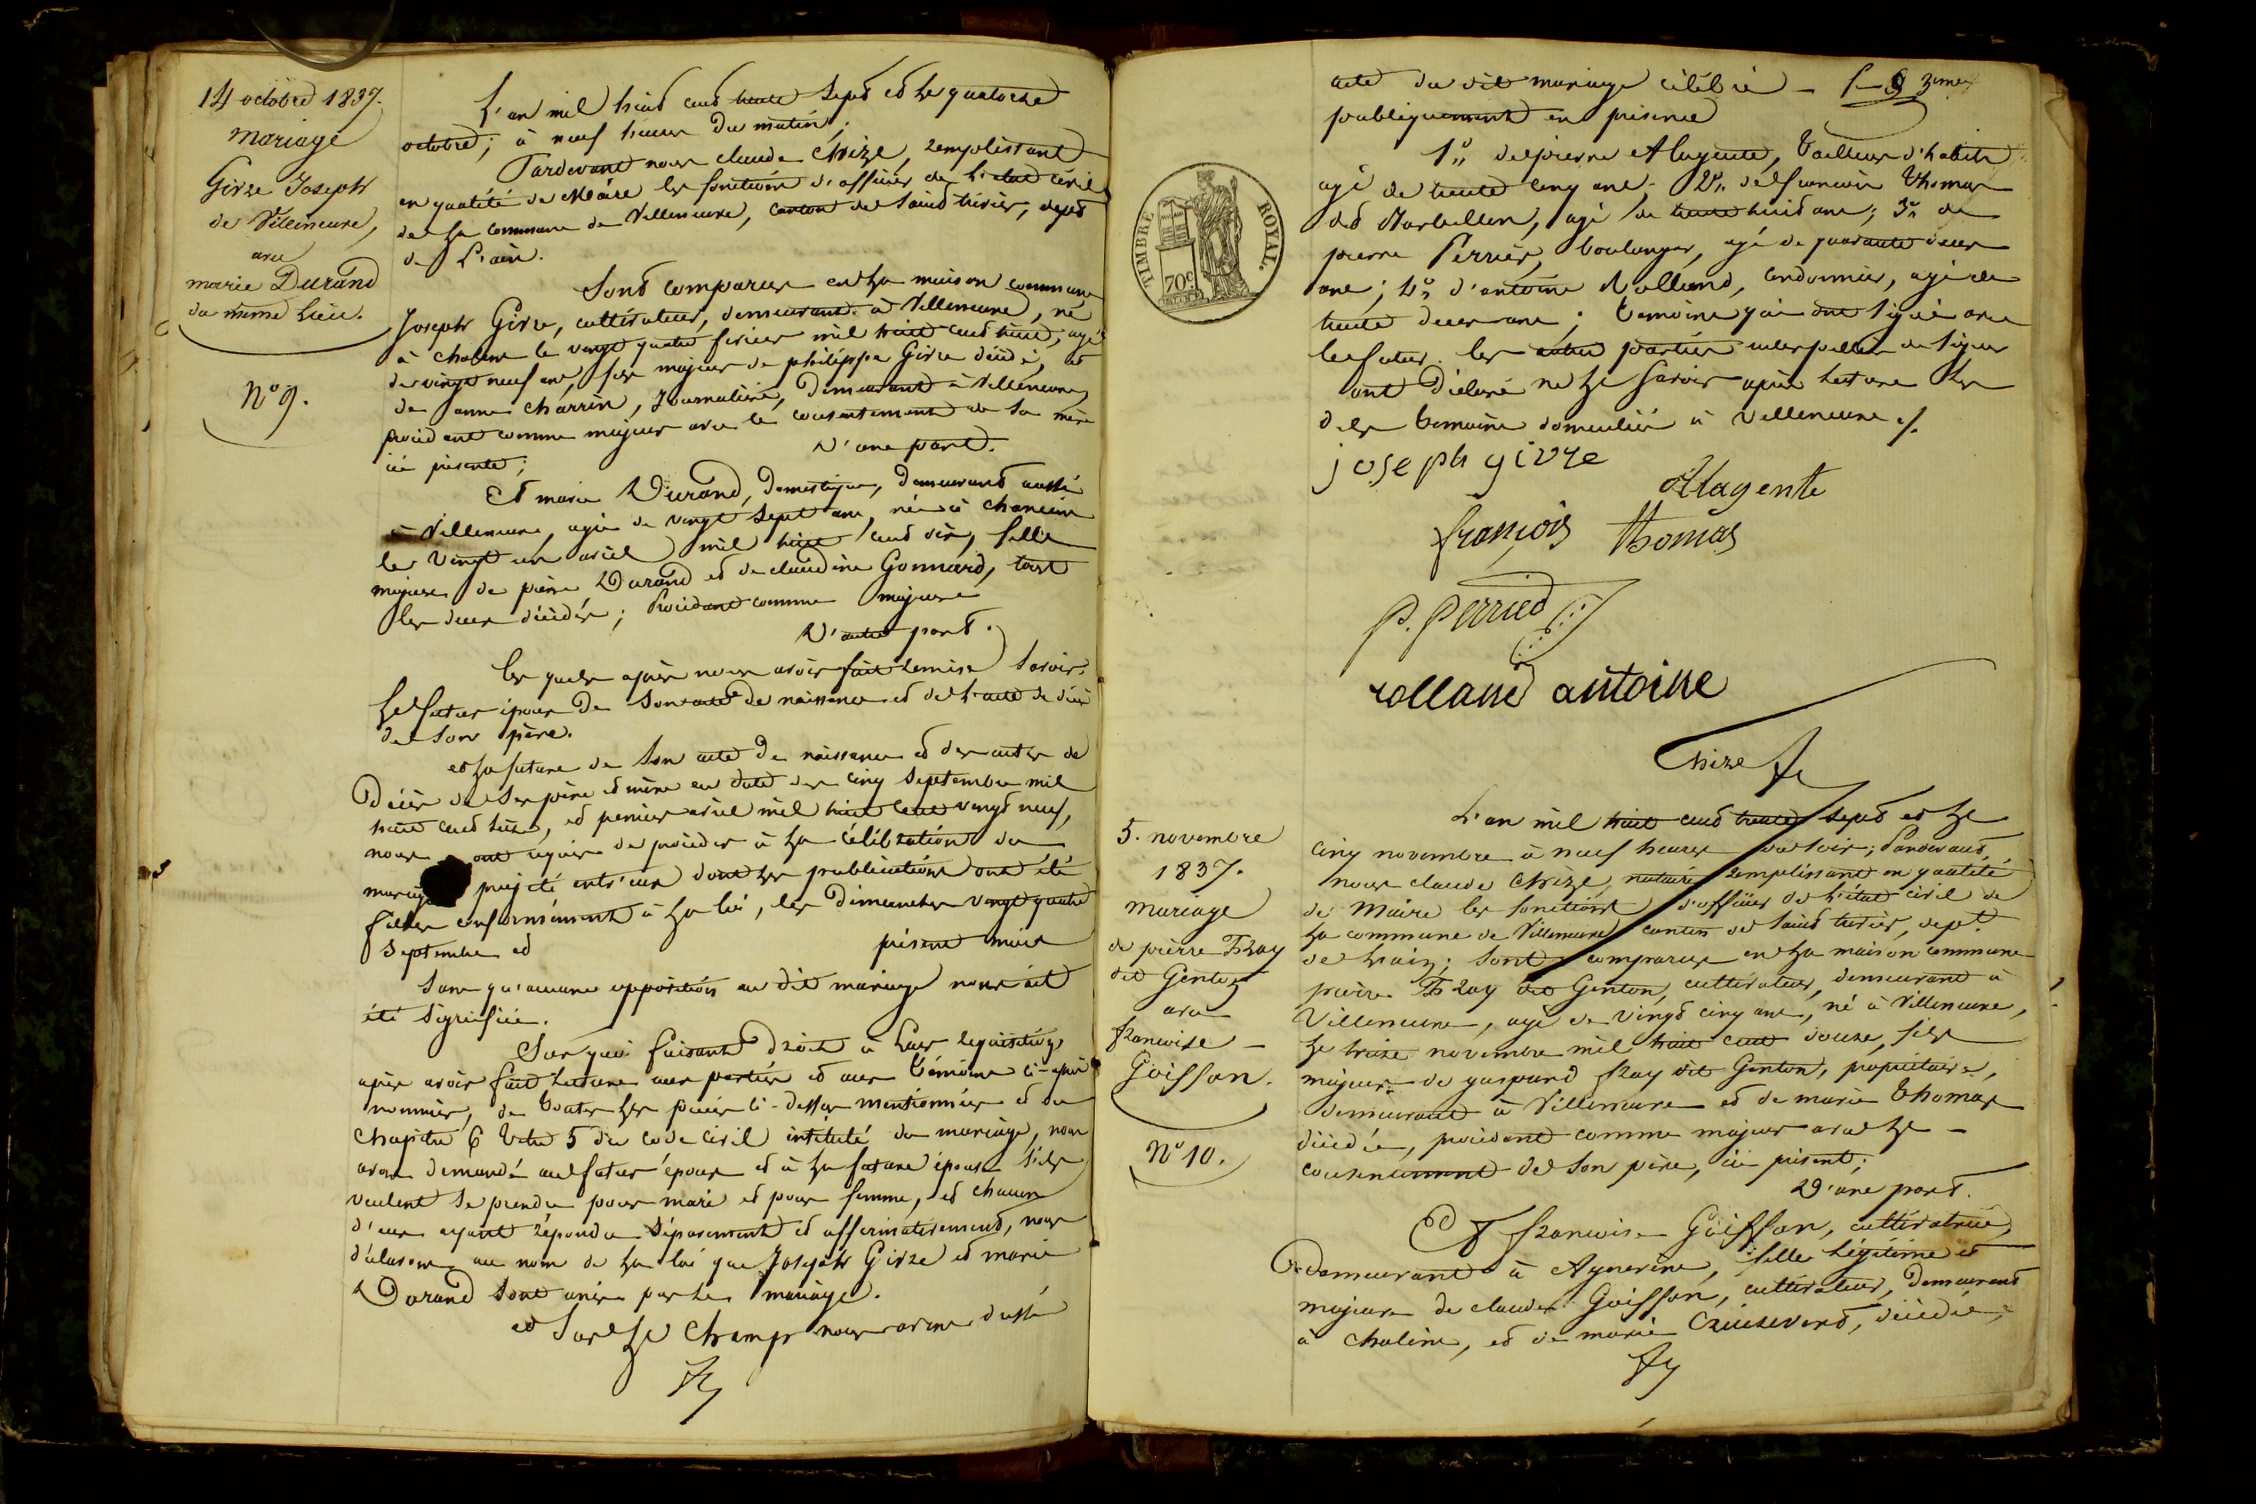 14 octobre 1837.
mariage
Givre Joseph
de Villeneuve,
avec
marie Durand
du même lieu.
N° 9.
L'an mil huit cent trente sept et le quatorze
octobre; à neuf heures du matin;
Pardevant nous claude Chize, remplissant
en qualité de Maire les fonctions d'officier de l'état civil
de la commune de Villeneuve, canton de saint trivier, dept
de L'ain.
Sont comparus en la maison commune
Joseph Givre, cultivateur, demeurant à Villeneuve, né
à chaleins le vingt quatre février mil huit cent huit, agé
de vingt neuf ans, fils majeur de philippe Givre décédé, et
de anne charrin, journalière, demeurant à Villeneuve,
procédant comme majeur avec le consentement de sa mère
ici présente;
D'une part.
Et marie Durand, domestique, demeurant aussi
à Villeneuve, agée de vingt sept ans, née à chaneins
le vingt un avril mil huit cent dix, fille
majeure de pierre Durand et de claudine Gonnard, tous
les deux décédés; Procédant comme majeure
D'autre part.
les quels après nous avoir fait remise savoir:
Le futur époux de son acte de naissance et de l'acte de décès
de son père.
et la future de son acte de naissance et des actes de
Décès de ses père et mère en date des cinq septembre mil
huit cent seize, et premier avril mil huit cent vingt neuf,
nous ont requis de procéder à la célébration du
mariage projeté entr'eux dont les publications ont été
faites conformément à la loi, les dimanches vingt quatre
septembre et présent mois
sans qu'aucune opposition au dit mariage nous ait
été signifiée.
Sur quoi faisant droit à leur réquisition,
après avoir fait lecture aux parties et aux témoins ci-après
nommés, de toutes les pièces ci-dessus mentionnées et du
chapitre 6 titre 5 du code civil intitulé du mariage, nous
avons demandé au futur époux et à la future épouse s'ils
veulent se prendre pour mari et pour femme, et chacun
d'eux ayant répondu séparément et affirmativement, nous
déclarons au nom de la loi que Joseph Givre et marie
Durand sont unis par le mariage.
et sur le champ nous avons dressé
acte du dit mariage célébré
publiquement en présence
1° de pierre Alagente, tailleur d'habits
agé de trente cinq ans. 2° de françois Thomas
dit Marbellon, agé de trente huit ans; 3° de
pierre Perrier, boulanger, agé de quarante deux
ans; 4° d'antoine Rolland, cordonnier, agé de
trente deux ans; témoins qui ont signé avec
le futur. les autres parties interpellées de signer
ont déclaré ne le savoir après lecture les
dits témoins domiciliés à villeneuve ./.
joseph givre
Alagente
françois Thomas
P. perrier
rolland antoine
Chize
TIMBRE ROYAL.
70c
5. novembre
1837.
mariage
de pierre Fray
dit Genton
avec
francoise
Goiffon.
N° 10.
L'an mil huit cent trente sept et le
cinq novembre à neuf heures du soir; Pardevant
nous claude Chize, notaire remplissant en qualité
de Maire les fonctions d'officier de l'état civil de
la commune de Villeneuve canton de saint trivier, dept.
de l'ain; sont comparus en la maison commune
pierre Fray dit Genton, cultivateur, demeurant à
Villeneuve, agé de vingt cinq ans, né à Villeneuve,
le treize novembre mil huit cent douze, fils
majeur de gaspard fray dit Genton, propriétaire,
demeurant à Villeneuve et de marie Thomas
décédée, procédant comme majeur avec le
consentement de son père, ici présent;
D'une part.
Et francoise Goiffon, cultivatrice,
demeurant à Agnereins, fille légitime et
majeure de claude Goiffon, cultivateur, demeurant
à chaleins, et de marie décédée,